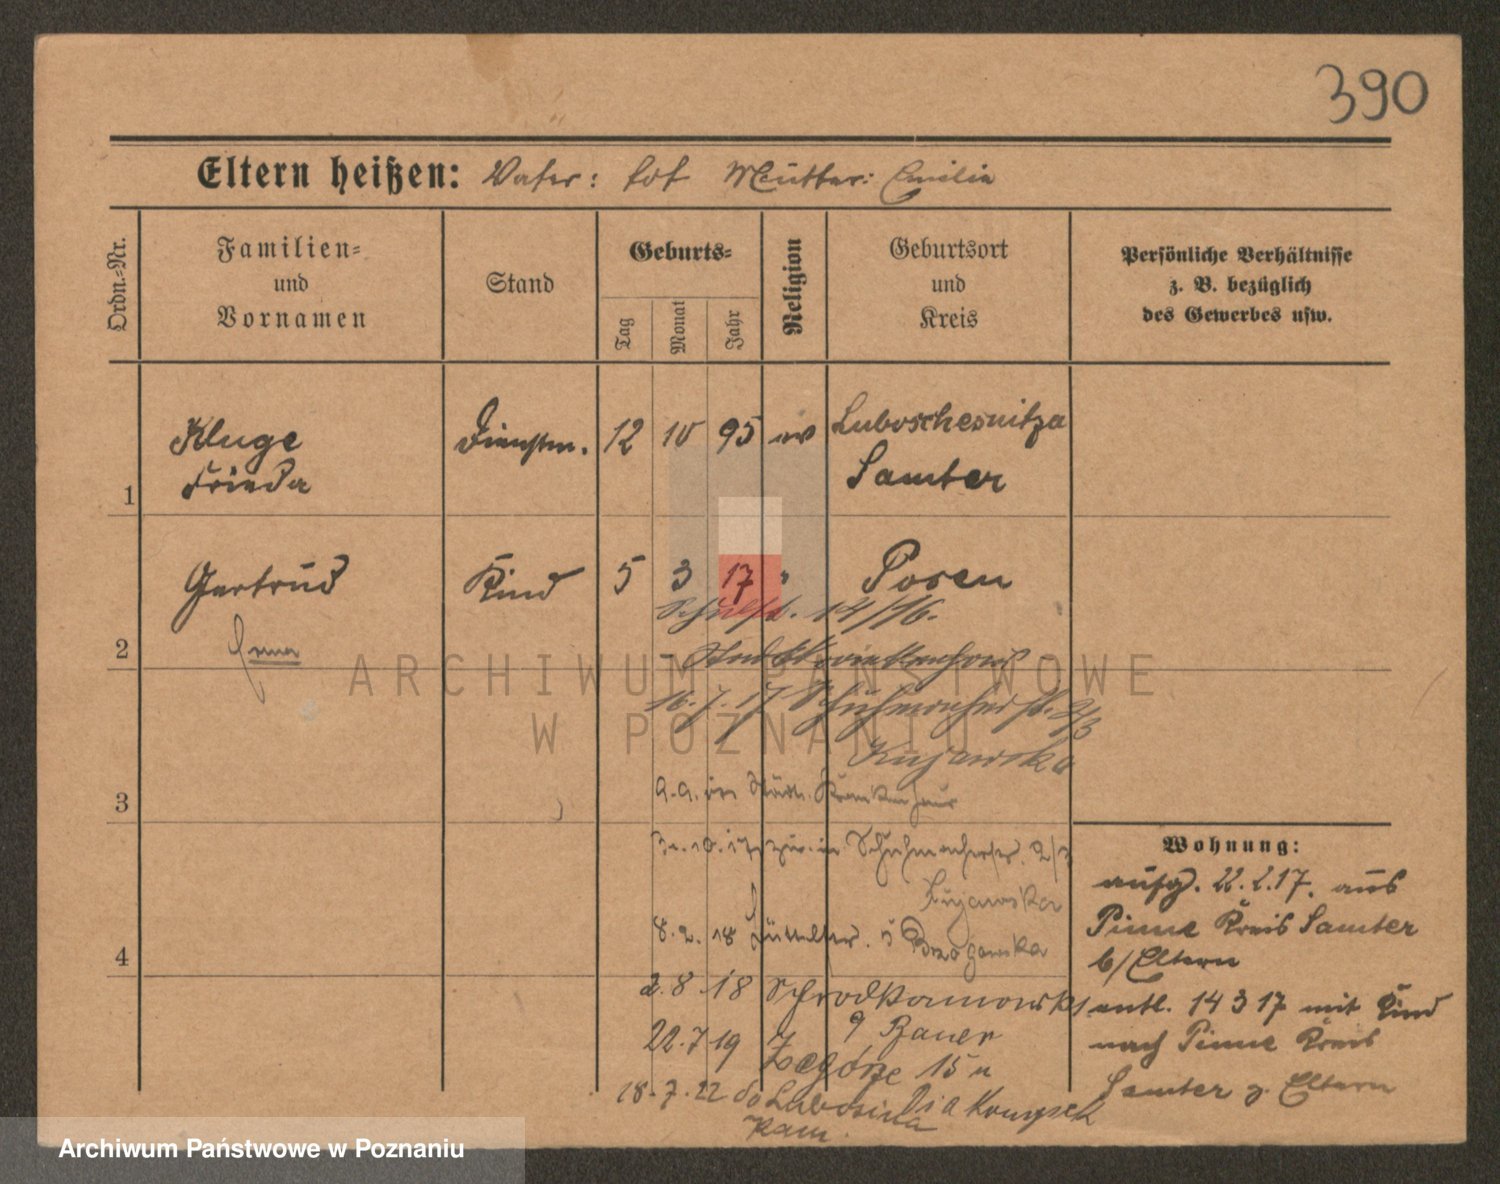 390
Eltern heißen: Vater: tot Mutter: Emilie
Ordn.-Nr.
Familien-
und
Vornamen
Stand
Geburts-
Tag
Monat
Jahr
Religion
Geburtsort
und
Kreis
Persönliche Verhältnisse
z. B. bezüglich
des Gewerbes usw.
1
Kluge
Frieda
Dienstm.
12 10 95 ev
Luboschesnitza
Samter
2
Gertrud
Kind
5 3 17 "
Posen
14/16.
16.7.17 Schuhmacherstr. 2/3
Kujawska
3
9.9. im Städt. Krankenhaus
10.17 zur. in Schuhmacherstr. 2/3
Kujawska
4
8.2.18
2.8.18 Schrodka
9 Bauer
22.7.19 Zagórze 15
18.7.22 do Lubosina
Wohnung:
aufg. 22.2.17. aus
Pinne Kreis Samter
b/Eltern
entl. 14 3 17 mit Kind
nach Pinne Kreis
Samter z. Eltern
ARCHIWUM PAŃSTWOWE
W POZNANIU
Archiwum Państwowe w Poznaniu